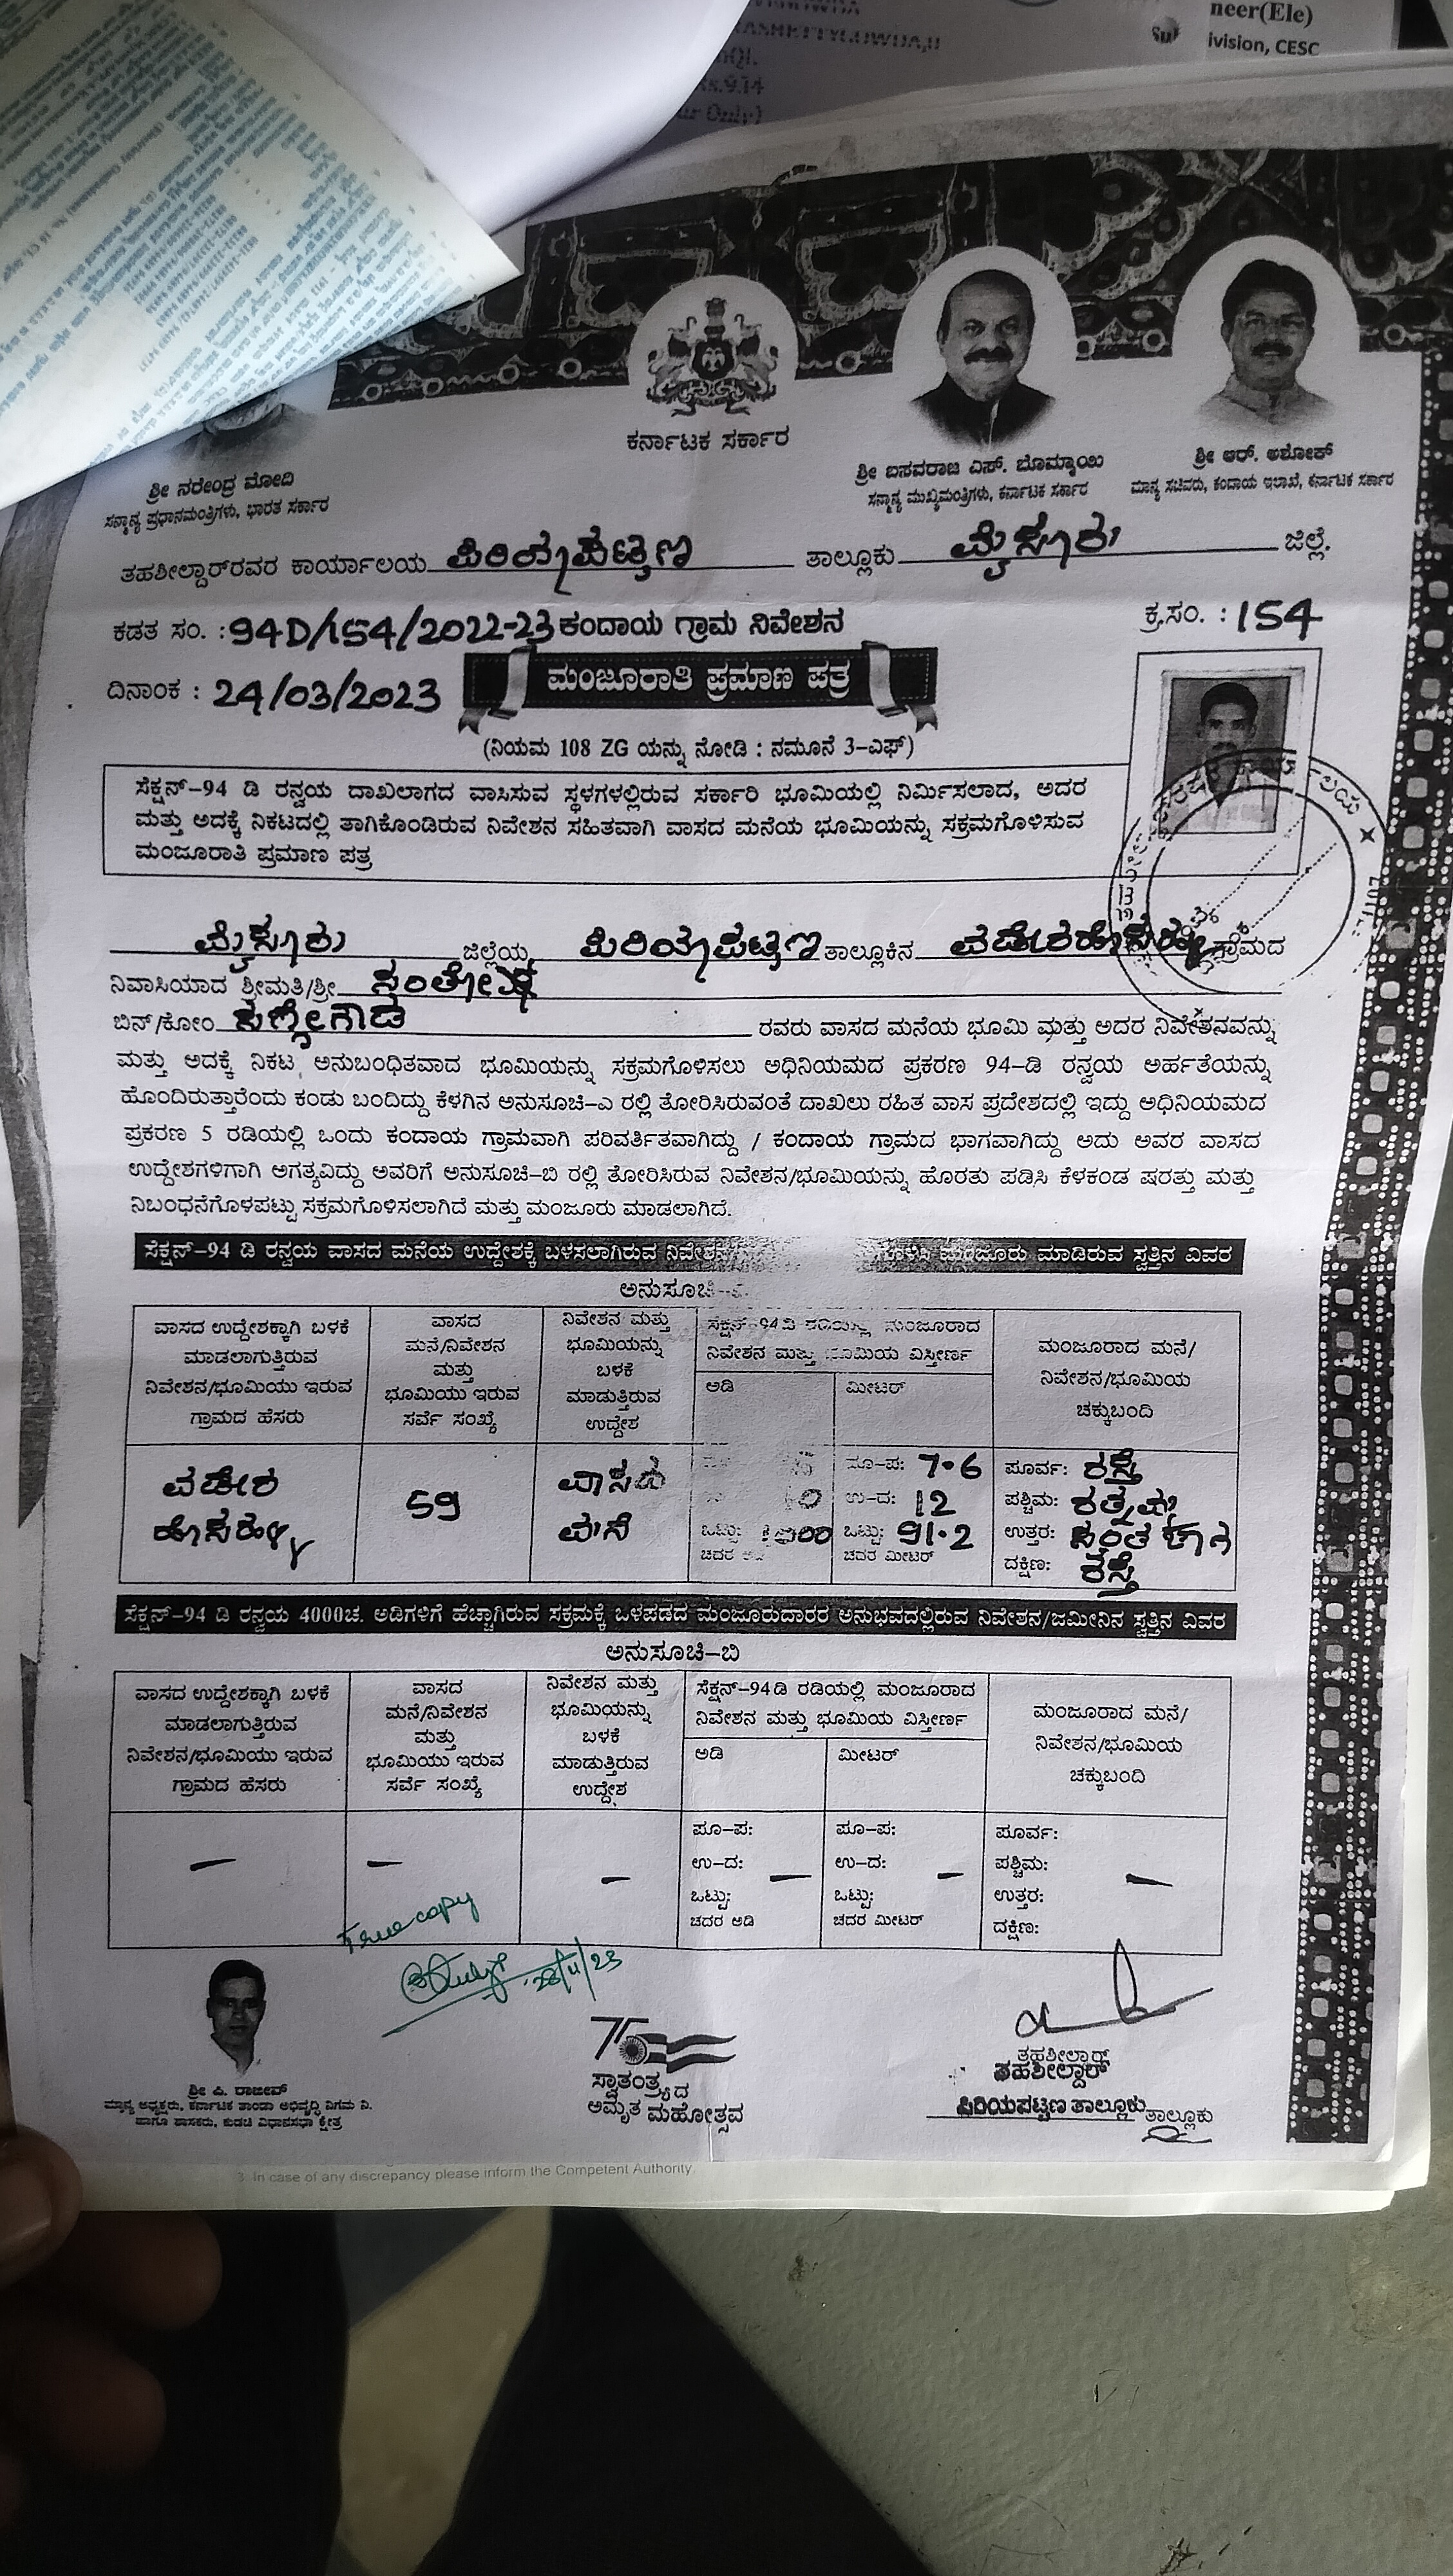 neer(Ele)
ivision, CESC
ಕರ್ನಾಟಕ ಸರ್ಕಾರ
ಶ್ರೀ ನರೇಂದ್ರ ಮೋದಿ
ಸನ್ಮಾನ್ಯ ಪ್ರಧಾನಮಂತ್ರಿಗಳು, ಭಾರತ ಸರ್ಕಾರ
ಶ್ರೀ ಬಸವರಾಜ ಎಸ್. ಬೊಮ್ಮಾಯಿ
ಸನ್ಮಾನ್ಯ ಮುಖ್ಯಮಂತ್ರಿಗಳು, ಕರ್ನಾಟಕ ಸರ್ಕಾರ
ಶ್ರೀ ಆರ್. ಅಶೋಕ್
ಮಾನ್ಯ ಸಚಿವರು, ಕಂದಾಯ ಇಲಾಖೆ, ಕರ್ನಾಟಕ ಸರ್ಕಾರ
ತಹಶೀಲ್ದಾರ್‌ರವರ ಕಾರ್ಯಾಲಯ ಪಿರಿಯಾಪಟ್ಟಣ ತಾಲ್ಲೂಕು ಮೈಸೂರು ಜಿಲ್ಲೆ.
ಕಡತ ಸಂ. : 94D/154/2022-23 ಕಂದಾಯ ಗ್ರಾಮ ನಿವೇಶನ ಕ್ರ.ಸಂ. : 154
ದಿನಾಂಕ : 24/03/2023 ಮಂಜೂರಾತಿ ಪ್ರಮಾಣ ಪತ್ರ
(ನಿಯಮ 108 ZG ಯನ್ನು ನೋಡಿ : ನಮೂನೆ 3-ಎಫ್)
ಸೆಕ್ಷನ್-94 ಡಿ ರನ್ವಯ ದಾಖಲಾಗದ ವಾಸಿಸುವ ಸ್ಥಳಗಳಲ್ಲಿರುವ ಸರ್ಕಾರಿ ಭೂಮಿಯಲ್ಲಿ ನಿರ್ಮಿಸಲಾದ, ಅದರ
ಮತ್ತು ಅದಕ್ಕೆ ನಿಕಟದಲ್ಲಿ ತಾಗಿಕೊಂಡಿರುವ ನಿವೇಶನ ಸಹಿತವಾಗಿ ವಾಸದ ಮನೆಯ ಭೂಮಿಯನ್ನು ಸಕ್ರಮಗೊಳಿಸುವ
ಮಂಜೂರಾತಿ ಪ್ರಮಾಣ ಪತ್ರ
ಮೈಸೂರು ಜಿಲ್ಲೆಯ, ಪಿರಿಯಾಪಟ್ಟಣ ತಾಲ್ಲೂಕಿನ ವಡೇರಹೊಸಹಳ್ಳಿ ಗ್ರಾಮದ
ನಿವಾಸಿಯಾದ ಶ್ರೀಮತಿ/ಶ್ರೀ ಸಂತೋಷ
ಬಿನ್/ಕೋಂ ಸಣ್ಣೇಗೌಡ ರವರು ವಾಸದ ಮನೆಯ ಭೂಮಿ ಮತ್ತು ಅದರ ನಿವೇಶನವನ್ನು
ಮತ್ತು ಅದಕ್ಕೆ ನಿಕಟ, ಅನುಬಂಧಿತವಾದ ಭೂಮಿಯನ್ನು ಸಕ್ರಮಗೊಳಿಸಲು ಅಧಿನಿಯಮದ ಪ್ರಕರಣ 94-ಡಿ ರನ್ವಯ ಅರ್ಹತೆಯನ್ನು
ಹೊಂದಿರುತ್ತಾರೆಂದು ಕಂಡು ಬಂದಿದ್ದು ಕೆಳಗಿನ ಅನುಸೂಚಿ-ಎ ರಲ್ಲಿ ತೋರಿಸಿರುವಂತೆ ದಾಖಲು ರಹಿತ ವಾಸ ಪ್ರದೇಶದಲ್ಲಿ ಇದ್ದು ಅಧಿನಿಯಮದ
ಪ್ರಕರಣ 5 ರಡಿಯಲ್ಲಿ ಒಂದು ಕಂದಾಯ ಗ್ರಾಮವಾಗಿ ಪರಿವರ್ತಿತವಾಗಿದ್ದು / ಕಂದಾಯ ಗ್ರಾಮದ ಭಾಗವಾಗಿದ್ದು ಅದು ಅವರ ವಾಸದ
ಉದ್ದೇಶಗಳಿಗಾಗಿ ಅಗತ್ಯವಿದ್ದು ಅವರಿಗೆ ಅನುಸೂಚಿ-ಬಿ ರಲ್ಲಿ ತೋರಿಸಿರುವ ನಿವೇಶನ/ಭೂಮಿಯನ್ನು ಹೊರತು ಪಡಿಸಿ ಕೆಳಕಂಡ ಷರತ್ತು ಮತ್ತು
ನಿಬಂಧನೆಗೊಳಪಟ್ಟು ಸಕ್ರಮಗೊಳಿಸಲಾಗಿದೆ ಮತ್ತು ಮಂಜೂರು ಮಾಡಲಾಗಿದೆ.
ಸೆಕ್ಷನ್-94 ಡಿ ರನ್ವಯ ವಾಸದ ಮನೆಯ ಉದ್ದೇಶಕ್ಕೆ ಬಳಸಲಾಗಿರುವ ನಿವೇಶನ ಮಂಜೂರು ಮಾಡಿರುವ ಸ್ವತ್ತಿನ ವಿವರ
ಅನುಸೂಚಿ-
ವಾಸದ ಉದ್ದೇಶಕ್ಕಾಗಿ ಬಳಕೆ
ಮಾಡಲಾಗುತ್ತಿರುವ
ನಿವೇಶನ/ಭೂಮಿಯು ಇರುವ
ಗ್ರಾಮದ ಹೆಸರು
ವಾಸದ
ಮನೆ/ನಿವೇಶನ
ಮತ್ತು
ಭೂಮಿಯು ಇರುವ
ಸರ್ವೆ ಸಂಖ್ಯೆ
ನಿವೇಶನ ಮತ್ತು
ಭೂಮಿಯನ್ನು
ಬಳಕೆ
ಮಾಡುತ್ತಿರುವ
ಉದ್ದೇಶ
ಸೆಕ್ಷನ್-94ಡಿ ರಡಿಯಲ್ಲಿ ಮಂಜೂರಾದ
ನಿವೇಶನ ಮತ್ತು ಭೂಮಿಯ ವಿಸ್ತೀರ್ಣ
ಅಡಿ
ಮೀಟರ್
ಮಂಜೂರಾದ ಮನೆ/
ನಿವೇಶನ/ಭೂಮಿಯ
ಚಕ್ಕುಬಂದಿ
ವಡೇರ
ಹೊಸಹಳ್ಳಿ
59
ವಾಸದ
ಮನೆ
ಒಟ್ಟು: 1000
ಚದರ
ಪೂ-ಪ: 7.6
ಉ-ದ: 12
ಒಟ್ಟು: 91.2
ಚದರ ಮೀಟರ್
ಪೂರ್ವ: ರಸ್ತೆ
ಪಶ್ಚಿಮ: ರತ್ನಮ್ಮ
ಉತ್ತರ:
ದಕ್ಷಿಣ: ರಸ್ತೆ
ಸೆಕ್ಷನ್-94 ಡಿ ರನ್ವಯ 4000ಚ. ಅಡಿಗಳಿಗೆ ಹೆಚ್ಚಾಗಿರುವ ಸಕ್ರಮಕ್ಕೆ ಒಳಪಡದ ಮಂಜೂರುದಾರರ ಅನುಭವದಲ್ಲಿರುವ ನಿವೇಶನ/ಜಮೀನಿನ ಸ್ವತ್ತಿನ ವಿವರ
ಅನುಸೂಚಿ-ಬಿ
ವಾಸದ ಉದ್ದೇಶಕ್ಕಾಗಿ ಬಳಕೆ
ಮಾಡಲಾಗುತ್ತಿರುವ
ನಿವೇಶನ/ಭೂಮಿಯು ಇರುವ
ಗ್ರಾಮದ ಹೆಸರು
ವಾಸದ
ಮನೆ/ನಿವೇಶನ
ಮತ್ತು
ಭೂಮಿಯು ಇರುವ
ಸರ್ವೆ ಸಂಖ್ಯೆ
ನಿವೇಶನ ಮತ್ತು
ಭೂಮಿಯನ್ನು
ಬಳಕೆ
ಮಾಡುತ್ತಿರುವ
ಉದ್ದೇಶ
ಸೆಕ್ಷನ್-94ಡಿ ರಡಿಯಲ್ಲಿ ಮಂಜೂರಾದ
ನಿವೇಶನ ಮತ್ತು ಭೂಮಿಯ ವಿಸ್ತೀರ್ಣ
ಅಡಿ
ಮೀಟರ್
ಮಂಜೂರಾದ ಮನೆ/
ನಿವೇಶನ/ಭೂಮಿಯ
ಚಕ್ಕುಬಂದಿ
—
—
—
ಪೂ-ಪ:
ಉ-ದ: —
ಒಟ್ಟು:
ಚದರ ಅಡಿ
ಪೂ-ಪ:
ಉ-ದ: —
ಒಟ್ಟು:
ಚದರ ಮೀಟರ್
ಪೂರ್ವ:
ಪಶ್ಚಿಮ: —
ಉತ್ತರ:
ದಕ್ಷಿಣ:
True copy
28/11/23
ಶ್ರೀ ಪಿ. ರಾಜೀವ್
ಮಾನ್ಯ ಅಧ್ಯಕ್ಷರು, ಕರ್ನಾಟಕ ತಾಂಡಾ ಅಭಿವೃದ್ಧಿ ನಿಗಮ ನಿ.
ಹಾಗೂ ಶಾಸಕರು, ಕುಡಚಿ ವಿಧಾನಸಭಾ ಕ್ಷೇತ್ರ
75
ಸ್ವಾತಂತ್ರ್ಯದ
ಅಮೃತ ಮಹೋತ್ಸವ
ತಹಶೀಲ್ದಾರ್
ತಹಶೀಲ್ದಾರ್
ಪಿರಿಯಪಟ್ಟಣ ತಾಲ್ಲೂಕು ತಾಲ್ಲೂಕು
3. In case of any discrepancy please inform the Competent Authority.